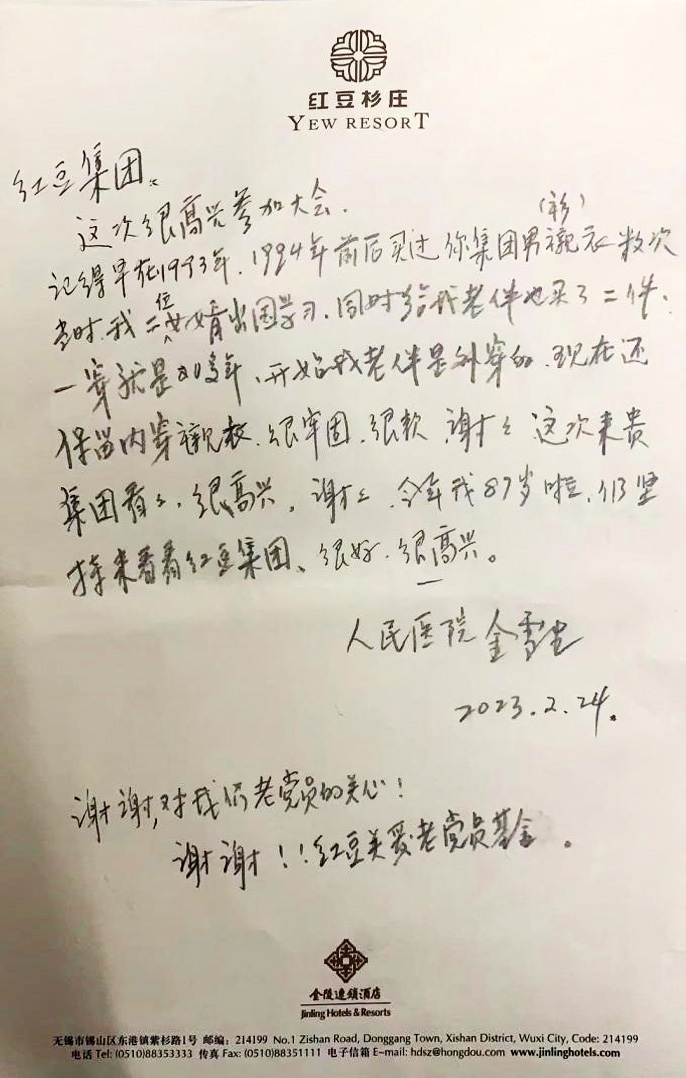 红豆杉庄
YEW RESORT
红豆集团：
这次很高兴参加大会．
(衫)
记得早在1993年．1994年前后买过你集团男衬衣数次
当时．我二位女婿出国学习．同时给我老伴也买了二件．
一穿就是20多年．开始我老伴是外穿的．现在还
保留内穿衬衣．很牢固．很软 谢谢 这次来贵
集团看看．很高兴．谢谢．今年我87岁啦．仍坚
持来看看红豆集团、很好．很高兴。
人民医院 金雪
2023.2.24.
谢谢，对我们老党员的关心！
谢谢！！红豆关爱老党员基金。
金陵连锁酒店
Jinling Hotels & Resorts
无锡市锡山区东港镇紫杉路1号 邮编：214199 No.1 Zishan Road, Donggang Town, Xishan District, Wuxi City, Code: 214199
电话 Tel: (0510)88353333 传真 Fax: (0510)88351111 电子信箱 E-mail: hdsz@hongdou.com www.jinlinghotels.com